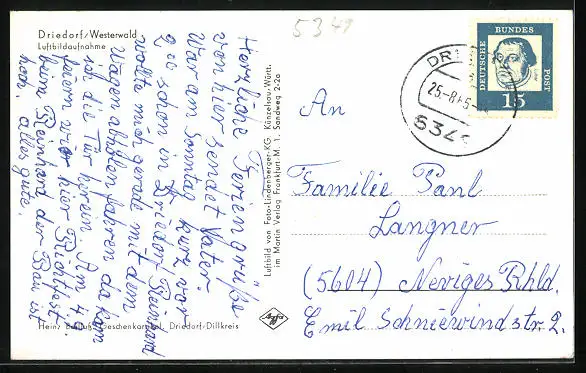 Driedorf/Westerwald
Luftbildaufnahme
Herzliche Feriengrüße
von hier sendet Vater.
War am Sonntag kurz vor
2 Uhr schon in Driedorf. Reinhard
wollte mich gerade mit dem
Wagen abholen fahren da kam
ich die Tür herein. Am 4.
feiern wir hier Richtfest
beim Reinhard der Bau ist
hoch. alles gute.
Heinz Geschenkartikel, Driedorf/Dillkreis
Luftbild von Foto-Lindenberger-KG. Künzelsau-Württ.
im Martin Verlag Frankfurt-M. 1, Sandweg 2-2a
Agfa
5349
DEUTSCHE
BUNDES
POST
15
DRI
25.-8
534
An
Familie Paul
Langner
(5604) Neviges Rhld.
Emil Schniewindstr. 2.